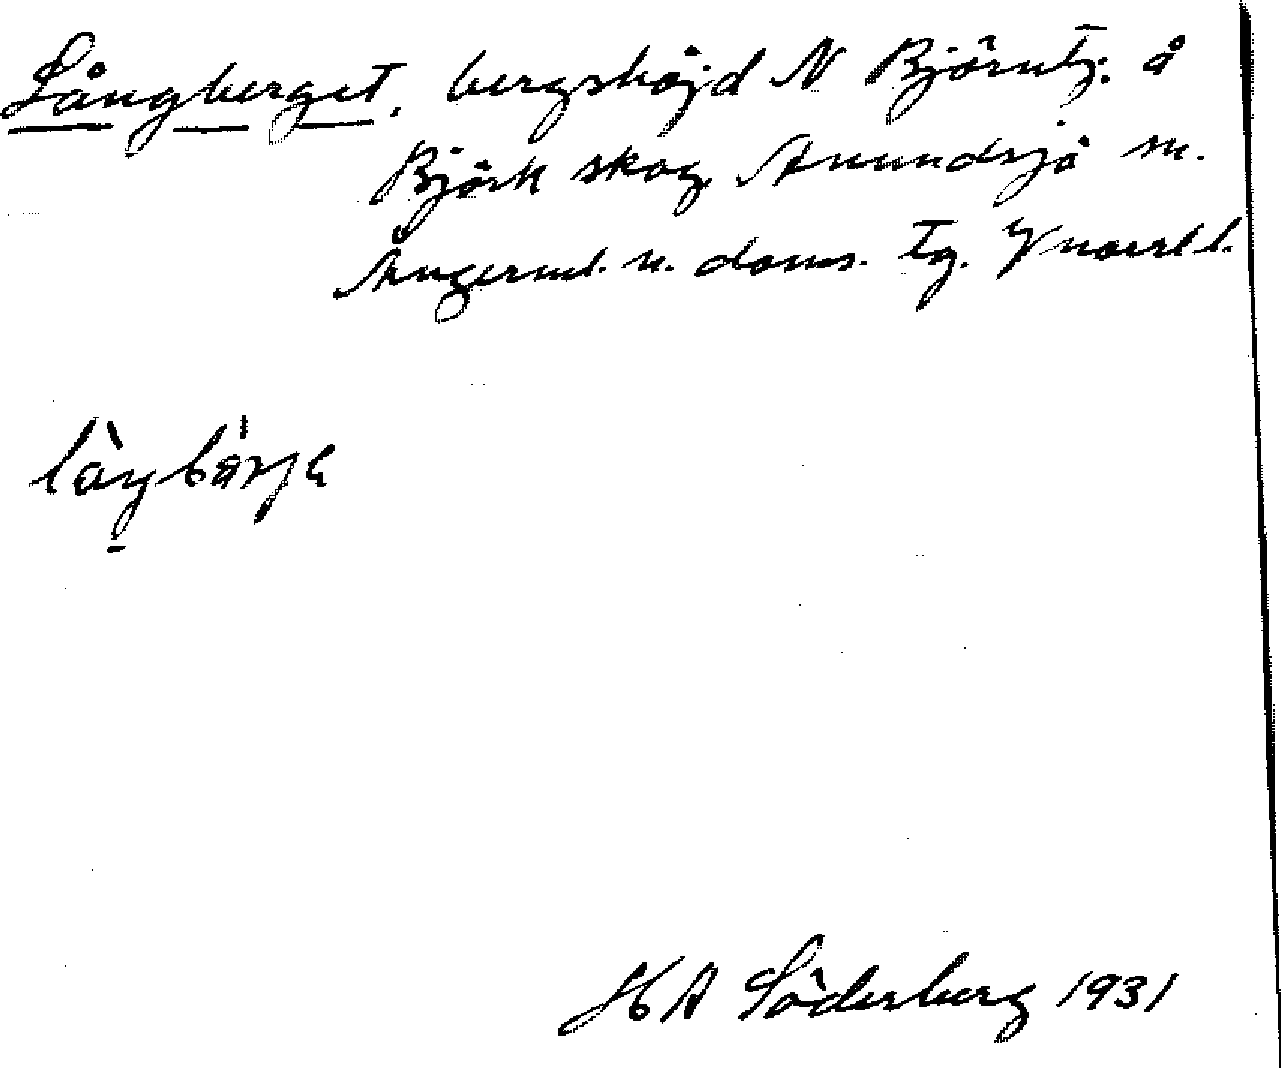 Långberget, bergshöjd N Björntj. å
Björk skog, Anundsjö sn.
Ångerml. n. doms. tg. Ynorrl l.
HA Söderberg 1931